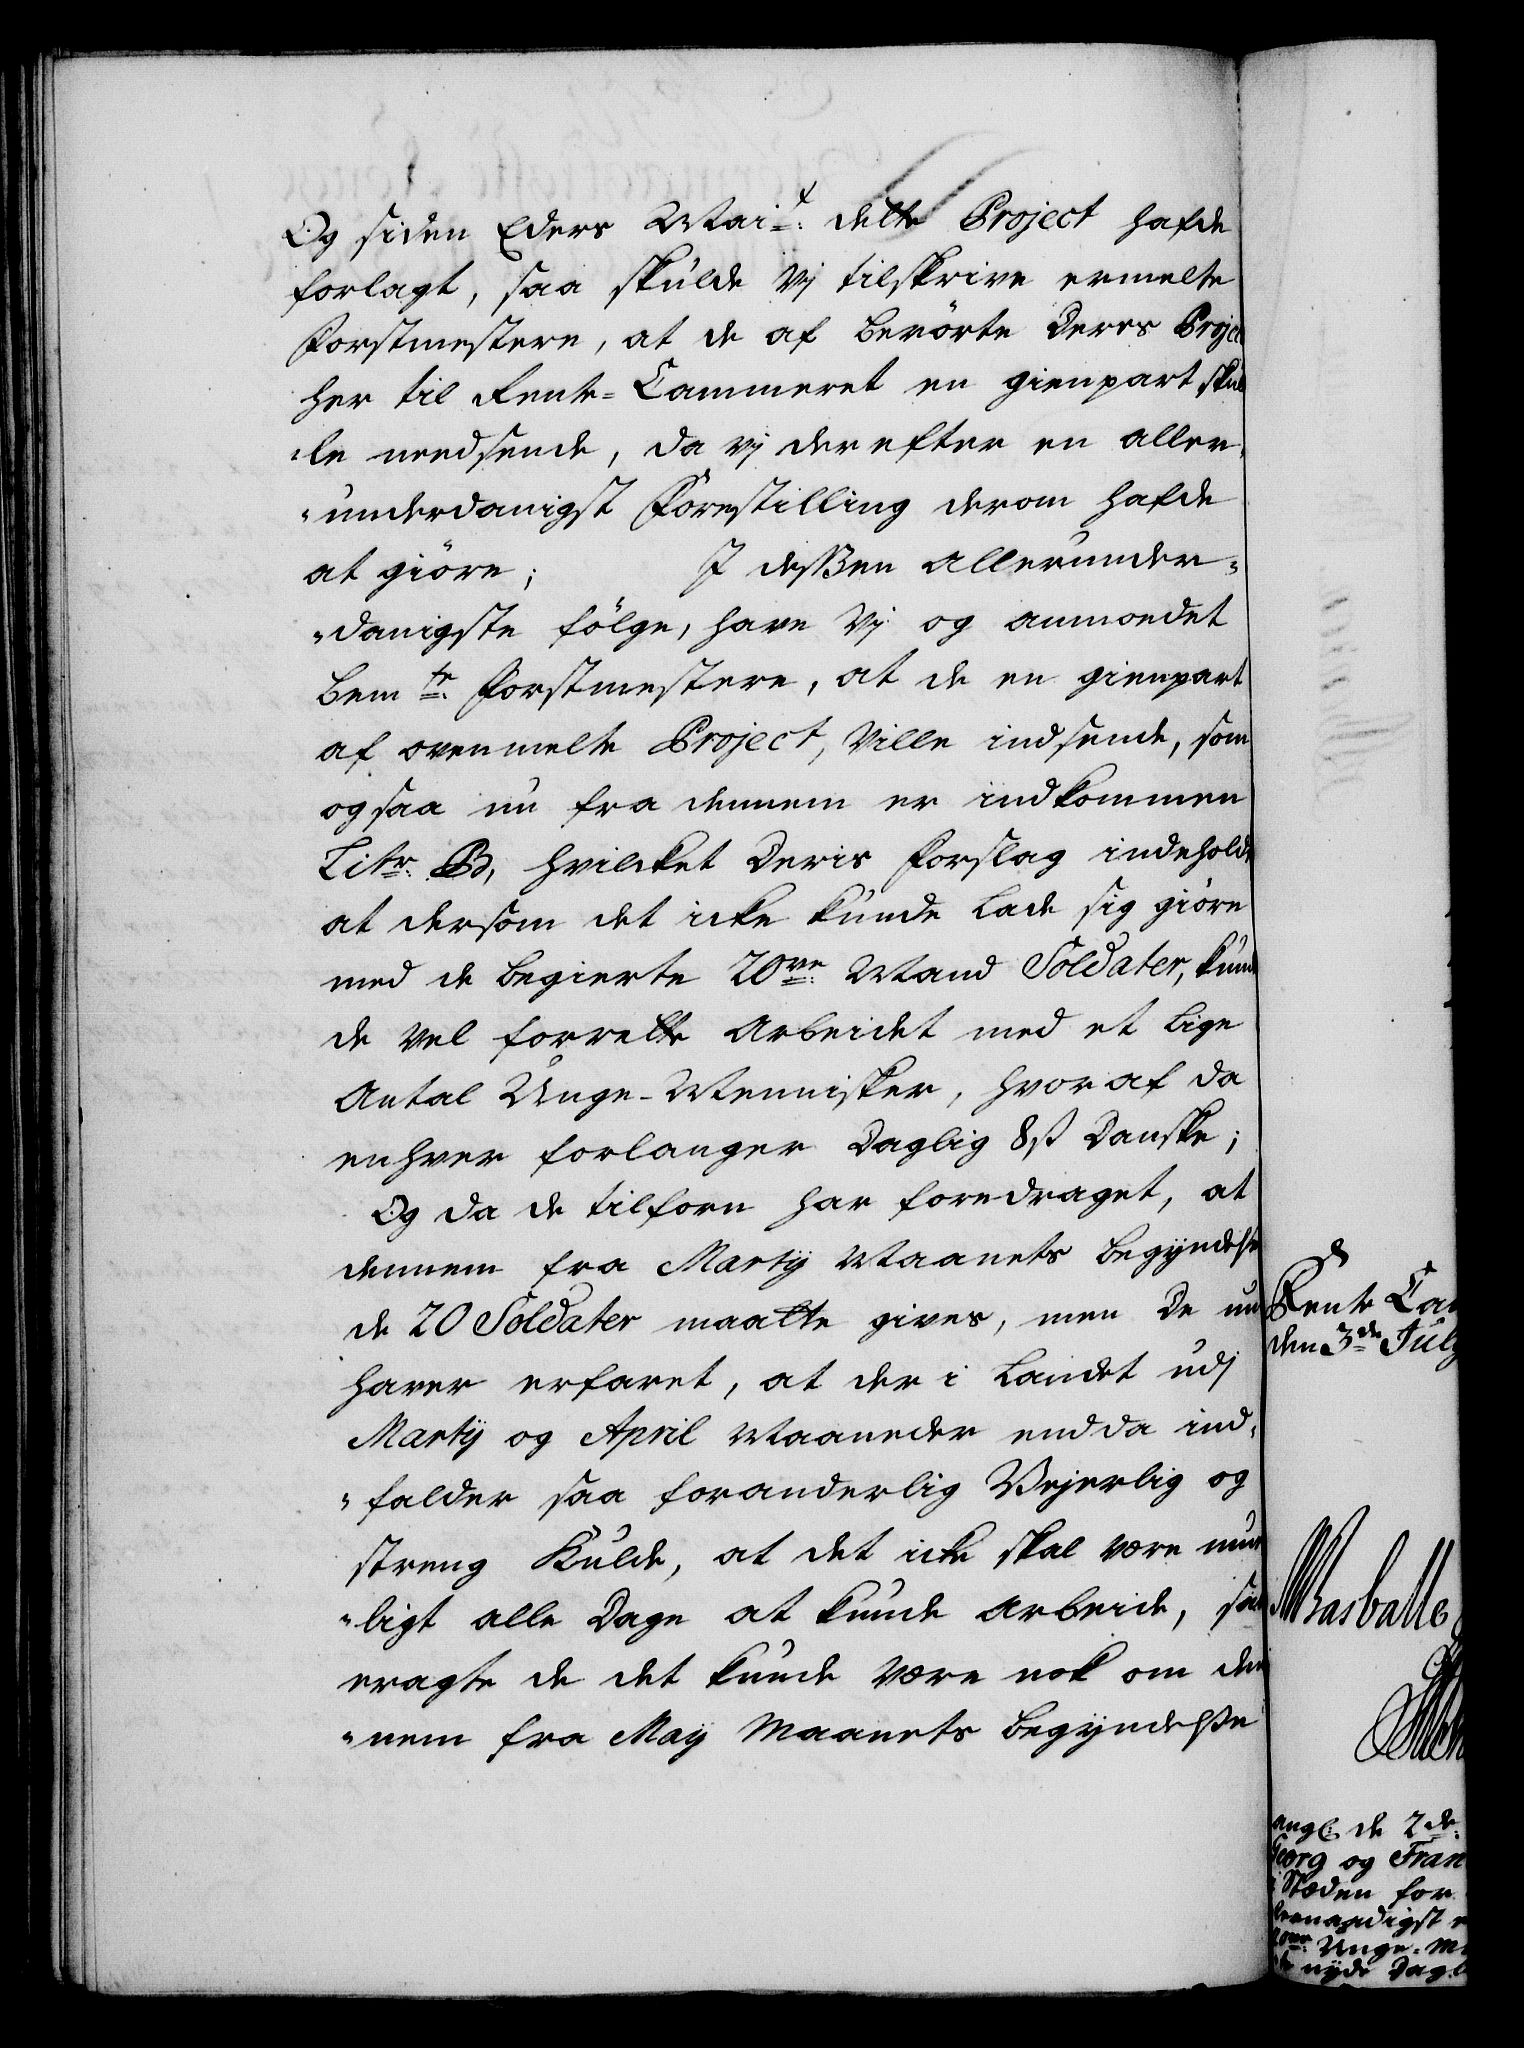 Og siden Eders Mai^t: dette Project hafde
forlagt, saa skulde Vj tilskrive ermelte
Forstmestere, at de af berörte Deres Projec
her til Rente-Cammeret en gienpart skul
-le needsende, da vj derefter en aller-
-underdanigst Forestilling derom hafde
at giöre; I dessen allerunder-
-danigste fölge, have Vj og anmoedet
bem^te: Forstmestere, at de en gienpart
af ovenmelte Project, Ville indsende, som
ogsaa nu fra dennem er indkommen
Litr: B, hvilcket Deris Forslag indeholde
at dersom det icke kunde lade sig giöre
med de begierte 20^ve: Mand Soldater, kun
de vel forrette Arbeidet med et lige
Antal Unge-Mennisker, hvoraf da
enhver forlanger Daglig 8 st Danske;
Og da de tilforn har foredraget, at
dennem fra Martij Maanets begyndelse
de 20 Soldater maatte gives, men De nu
haver erfaret, at der i Landet udj
Martij og April Maaneder endda ind-
-falder saa foranderlig Vejerlig og
streng Kulde, at det icke skal være mue
-ligt alle Dage at kunde arbeide, saa
eragte de det kunde være nok om den
-nem fra Maij Maanets begyndelse
Rente Cam
den 3^de July
Masballe
ang^e de 2^de:
Georg og Fran
i Stæden for
20^ve: Unge-Me
nyde Dagl